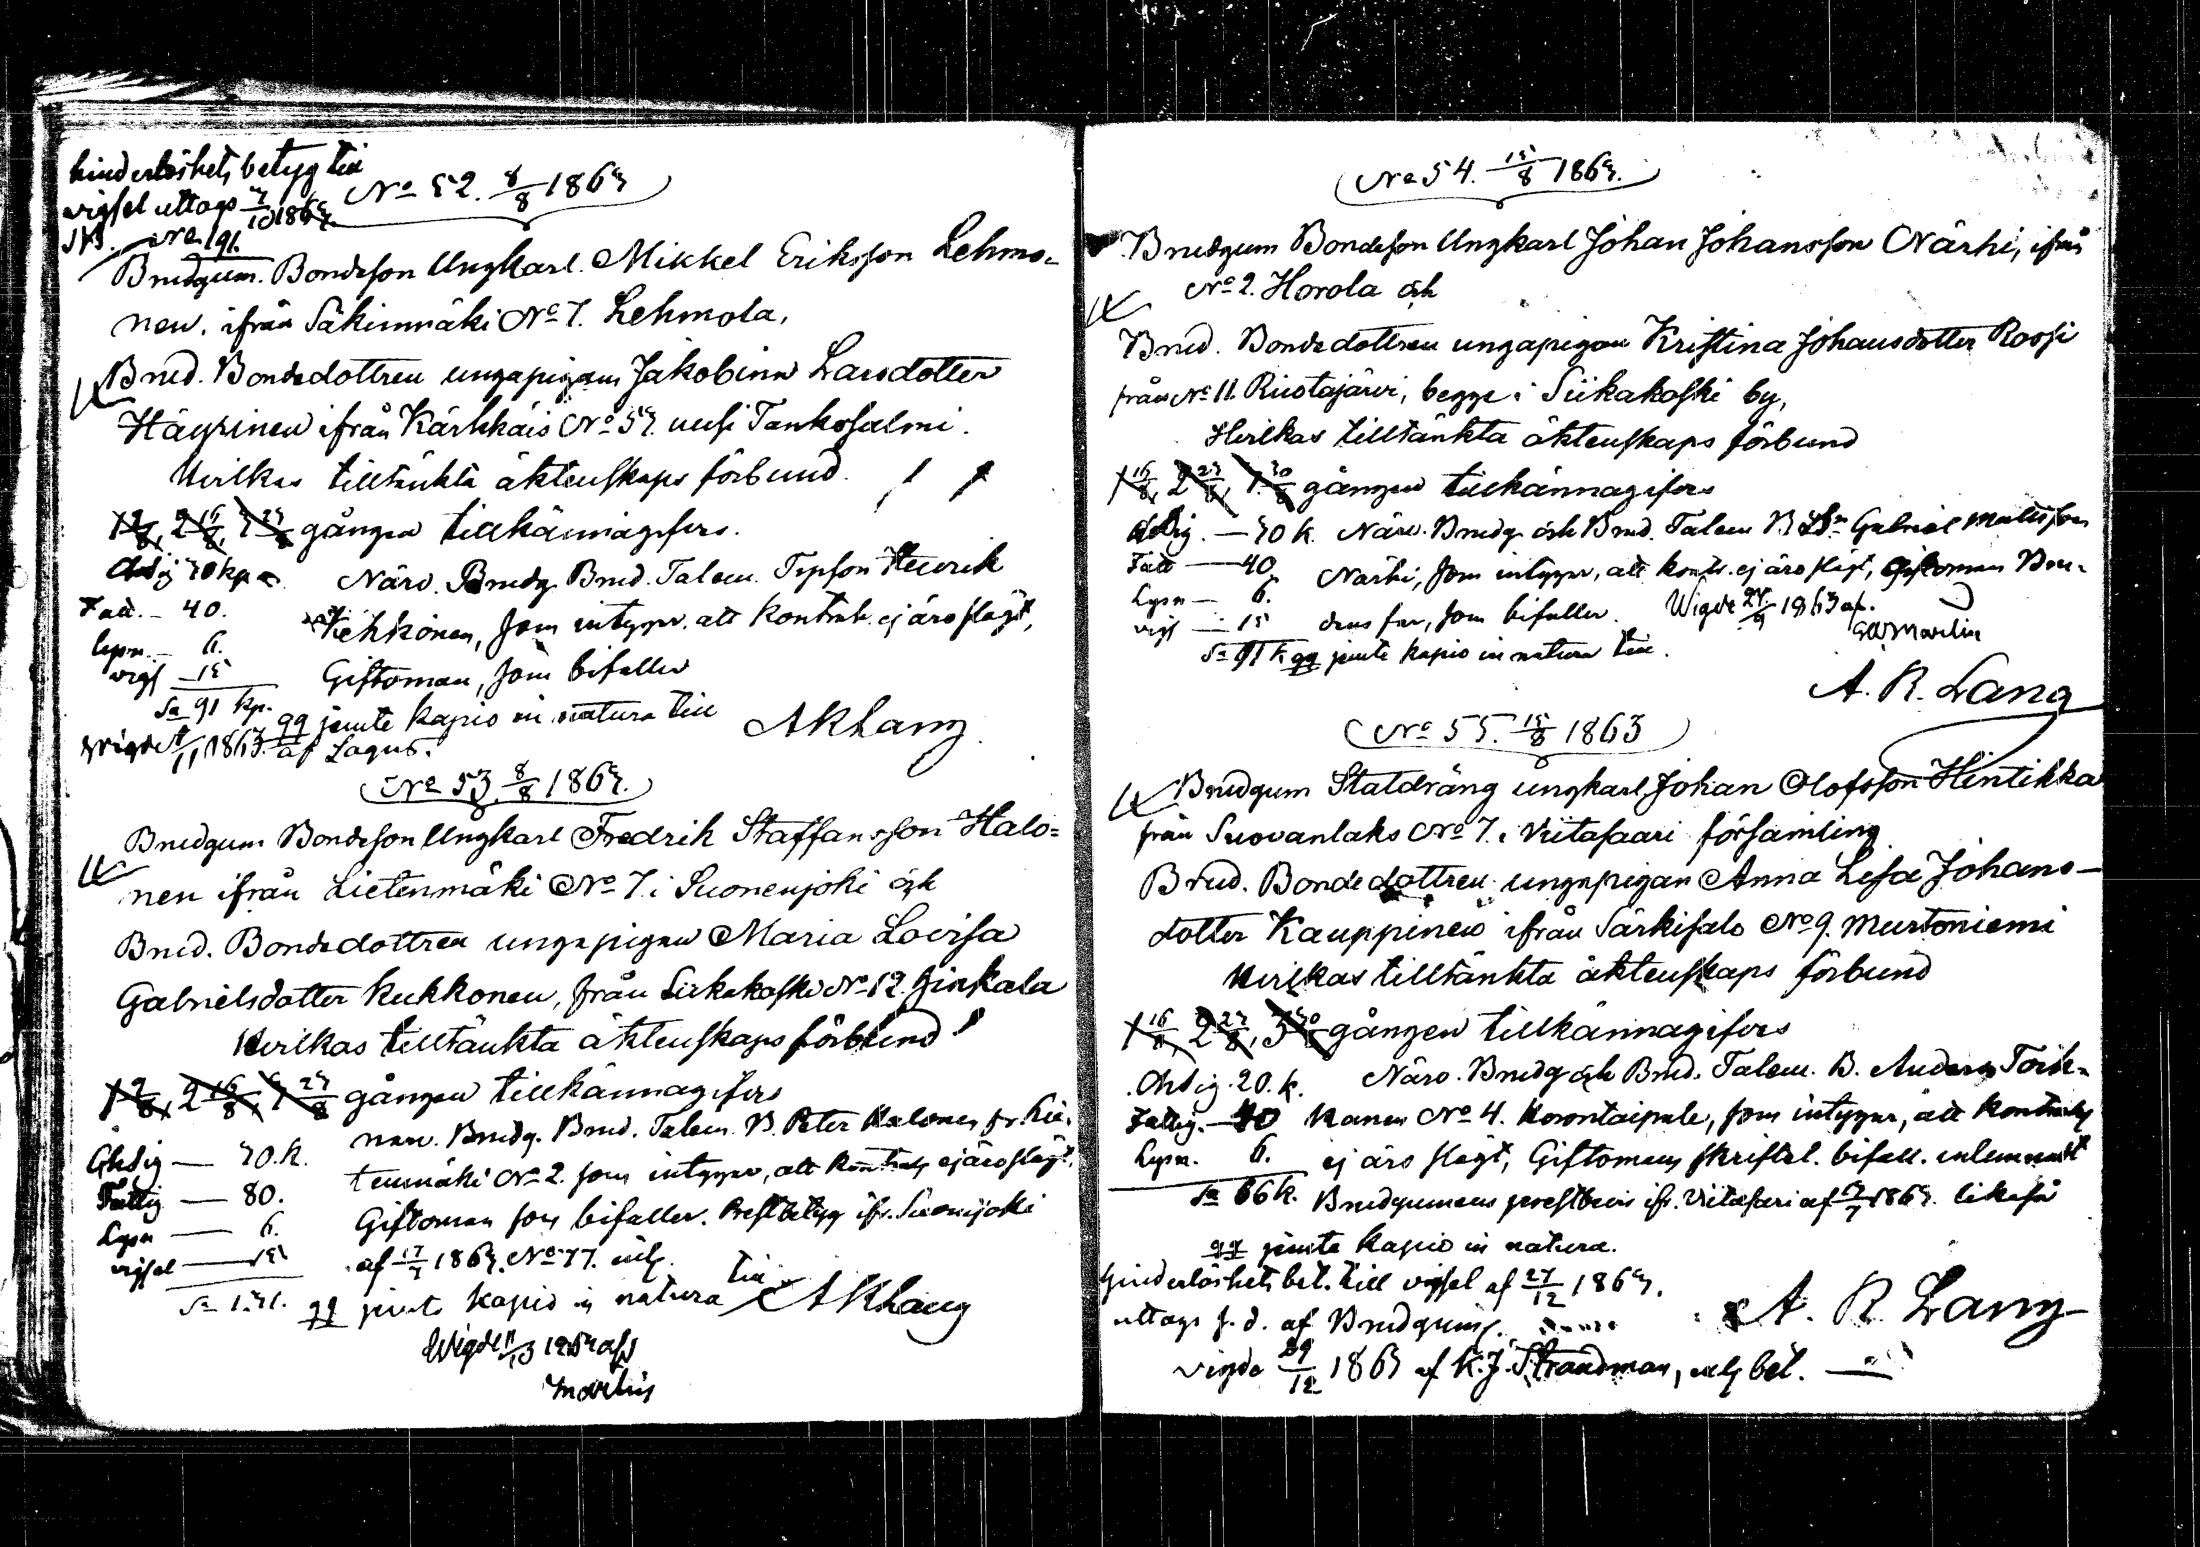 hinderlöshets betyg till
vigsel uttags 7/10 1863.
No 191.
No 52. 8/8 1863
Brudgum. Bondeson Ungkarl. Mikkel Eriksson Lehmo-
nen, ifrån Säkinmäki No 7. Lehmola,
Brud. Bondedottren ungapigan Jakobina Larsdotter
Häyrinen ifrån Kärkkäis No 53. uusi Tankosalmi.
Hvilkas tilltänkta äktenskaps förbund
1 9/8, 2 16/8, 3 23/8 gången tillkännagifves.
Ahdig 30 kp
Närv. Brudg. Brud. Talem. Henrik
Fatt. – 40.
Kehkonen, som intygar, att kontrah. ej äro slägt,
Lysn. – 6.
vigs – 15
Giftoman, som bifaller
Sa 91 kp.
qq jemte kapio in natura till
A R Lang
Wigde 1/11 1863 af Lagus.
No 53. 8/8 1863.
Brudgum Bondeson Ungkarl Fredrik Staffansson Halo-
nen ifrån Lietenmäki No 7. i Suonenjoki och
Brud. Bondedottren ungapigan Maria Lovisa
Gabrielsdotter Kukkonen, från Siikakoski No 12. Hinkala
Hvilkas tilltänkta äktenskaps förbund
1 9/8, 2 16/8, 3 23/8 gången tillkännagifves
närv. Brudg. Brud. Talem. B. Peter Halonen fr. Lie-
Ahdig — 30. k.
tenmäki No 2. som intygar, att kontrah. ej äro slägt,
Fattig — 80.
Giftoman som bifaller. Prestbetyg ifr. Suonenjoki
Lysn — 6.
af 17/7 1863. No 77. inl.
vigsel — 15
Sa 1.31.
qq jemte kapio in natura till
A R Lang
Wigde
Marlin
No 54. 15/8 1863.
Brudgum Bondeson Ungkarl Johan Johansson Närhi, ifrån
No 2. Horola och
Brud. Bondedottren ungapigan Kristina Johansdotter Rossi
från No 11. Ruotajärvi, begge i Siikakoski by,
Hvilkas tilltänkta äktenskaps förbund
1 16/8, 2 23/8, 3 30/8 gången tillkännagifves
Ahdig. — 30 k. Närv. Brudg. och Brud. Talem. Gabriel Mattsson
Fatt — 40.
Närhi, som intygar, att kontr. ej äro slägt, Giftoman Bru-
Lysn — 6.
vigs — 15
dens far, som bifaller.
Wigde 27/9 1863 af.
G W Marlin
Sa 91 k. qq jemte kapio in natura till.
A. R. Lang
No 55. 15/8 1863
Brudgum Statdräng ungkarl Johan Olofsson Hintikka
från Suovanlaks No 7. i Viitasaari församling
Brud. Bondedottren ungapigan Anna Lesa Johans-
dotter Kauppinen ifrån Särkisalo No 9. Murtoniemi
Hvilkas tilltänkta äktenskaps förbund
1 16/8, 2 23/8, 3 30/8 gången tillkännagifves
Ahdig. 20. k. Närv. Brudg. och Brud. Talem. B. Anders Toik-
Fattig. — 40 kanen No 4. Korontaipale, som intygar, att kontrah.
Lysn. 6. ej äro slägt, Giftomans skriftl. bifall. inlemnadt
Sa 66 k. Brudgumens prestbevis ifr. Viitasari af 1863. likaså
qq jemte kapio in natura.
Hinderlöshets bet. till vigsel af 27/12 1863.
uttags s. d. af Brudgum.
A. R. Lang
vigde 29/12 1863 af K. J. Strandman, enl. bet.